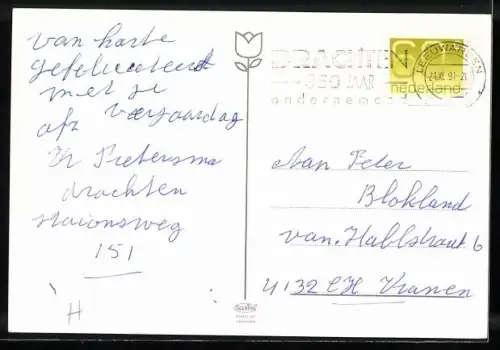 van harte
gefeliciteert
met je
afz verjaardag
Ek Pietersma
drachten
stationsweg
151
H
DRACHTEN
350 JAAR
ondernemend
LEEUWARDEN
nederland
Aan Peter
Blokland
van Hallstraat 6
4132 CH Vianen